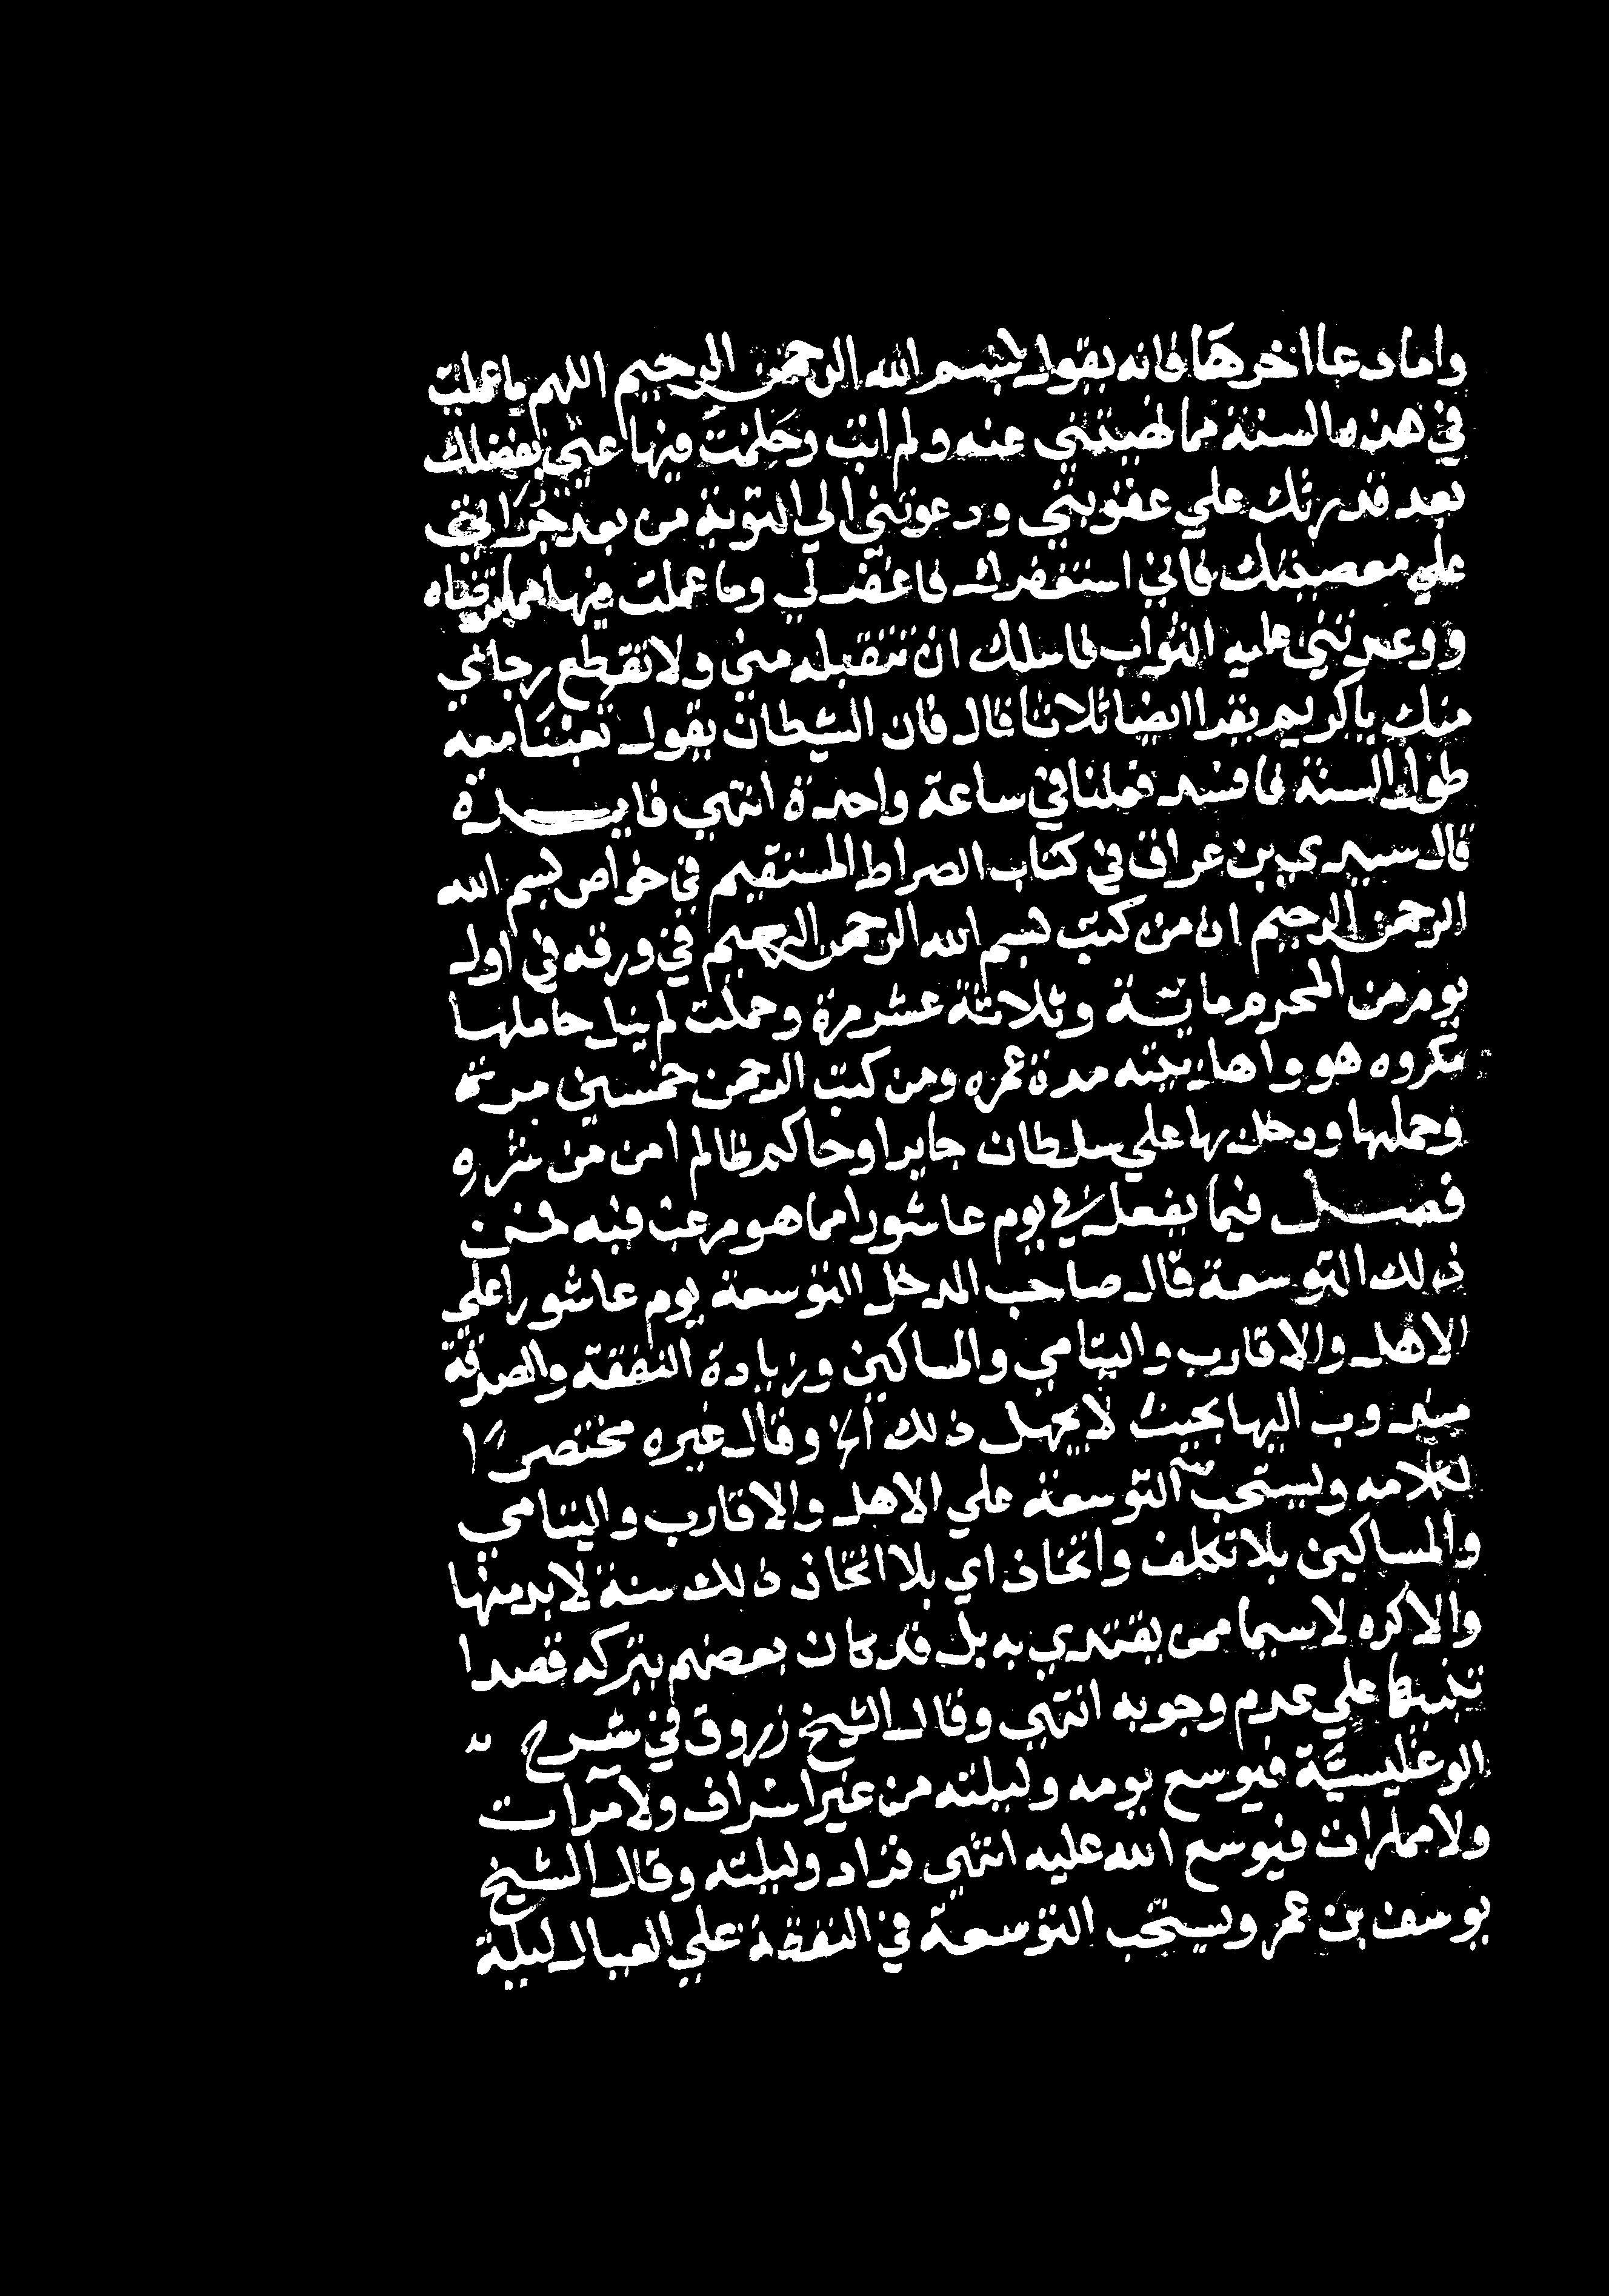 واما دعا اخرها فانه يقول بسم الله الرحمن الرحيم اللهم ما عملت
في هذه السنة مما نهيتني عنه ولم اتب وحلمت فيها عني بفضلك
بعد قدرتك علي عقوبتي ودعوتني الي التوبة من بعد جراتي
علي معصيتك فاني استغفرك فاغفر لي وما عملت فيها مما ترضاه
ووعدتني عليه الثواب فاسلك ان تتقبله مني ولا تقطع رجائي
منك يا كريم يقرا ايضا ثلاثا قال فان الشيطان يقول تعبنا معه
طول السنة فافسد فعلنا في ساعة واحدة انتهي فايدة
قال سيدي بن عراق في كتاب الصراط المستقيم في خواص بسم الله
الرحمن الرحيم ان من كتب بسم الله الرحمن الرحيم في ورقه في اول
يوم من المحرم ماية وثلاثة عشر مرة وحملت لم ينل حاملها
مكروه هو واهل بيته مدة عمره ومن كتب الرحمن خمسين مرة
وحملها ودخل بها علي سلطان جاير او حاكم ظالم امن من شره
فصل فيما يفعل في يوم عاشورا مما هو مرغب فيه فمن
ذلك التوسعة قال صاحب المدخل التوسعة يوم عاشورا علي
الاهل والاقارب واليتامي والمساكين وزيادة النفقة والصدقة
مندوب اليها بحيث لا يجهل ذلك اه وقال غيره مختصرا
لكلامه ويستحب التوسعة علي الاهل والاقارب واليتامي
والمساكين بلا تكلف واتخاذ اي بلا اتخاذ ذلك سنة لا بد منها
والا كره لا سيما ممن يقتدي به بل قد كان بعضهم يتركه قصدا
تنبيها علي عدم وجوبه انتهي وقال الشيخ زروق في شرح
الوغليسية فيوسع يومه وليلته من غير اسراف ولا مرات
ولا ممارات فيوسع الله عليه انتهي فزاد وليلته وقال الشيخ
يوسف بن عمر ويستحب التوسعة في النفقة علي العيال ليلة